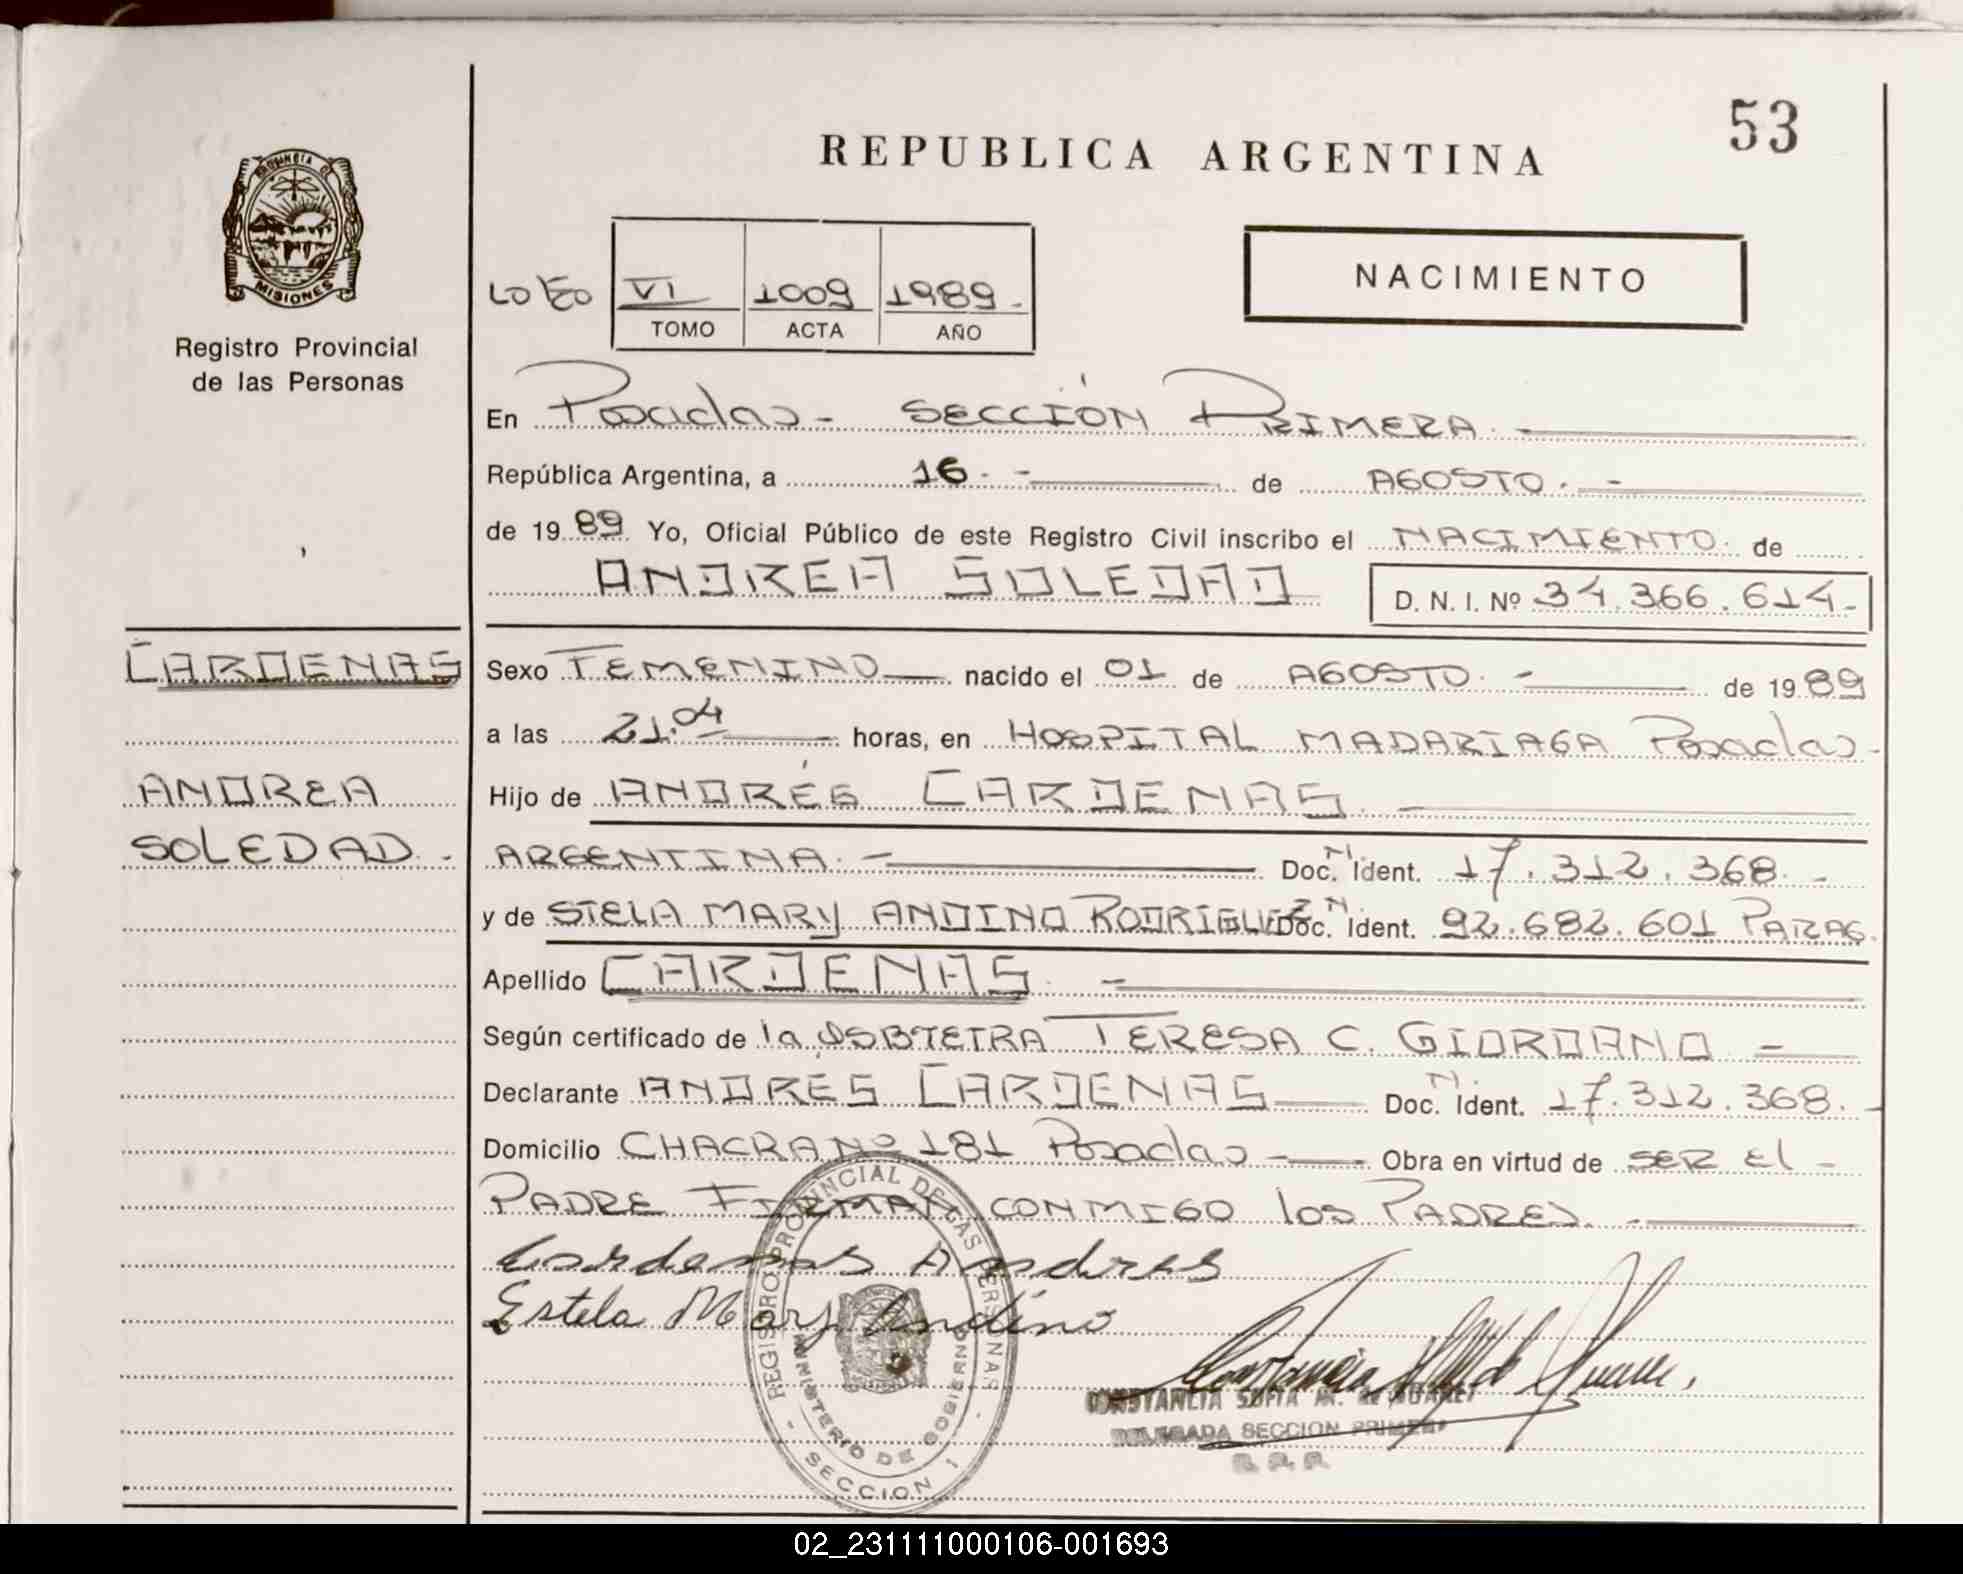 53
REPUBLICA ARGENTINA
PROVINCIA DE
MISIONES
Registro Provincial
de las Personas
NACIMIENTO
VI 1009 1989.-
TOMO ACTA AÑO
En Posadas - SECCIÓN PRIMERA.
República Argentina, a 16.- de AGOSTO.-
de 1989 Yo, Oficial Público de este Registro Civil inscribo el NACIMIENTO. de
ANDREA SOLEDAD D. N. I. Nº 34.366.614.-
CARDENAS
ANDREA
SOLEDAD.-
Sexo FEMENINO nacido el 01 de AGOSTO.- de 1989
a las 21.04 horas, en HOSPITAL MADARIAGA Posadas-
Hijo de ANDRÉS CARDENAS.
ARGENTINA.- Doc. N. Ident. 17.312.368.-
y de STELA MARY ANDINO RODRIGUEZ Doc. N. Ident. 92.682.601 PARAG.
Apellido CARDENAS.-
Según certificado de la OSBTETRA TERESA C. GIORDANO -
Declarante ANDRES CARDENAS Doc. N. Ident. 17.312.368.-
Domicilio CHACRA Nº 181 Posadas- Obra en virtud de SER El -
PADRE FIRMAN CONMIGO los PADRES.
Cardenas Andres
Estela Mary Andino
REGISTRO PROVINCIAL DE LAS PERSONAS
MINISTERIO DE GOBIERNO
- SECCION 1 -
CONSTANCIA SOFIA M. de
DELEGADA SECCION PRIMERA
02_231111000106-001693